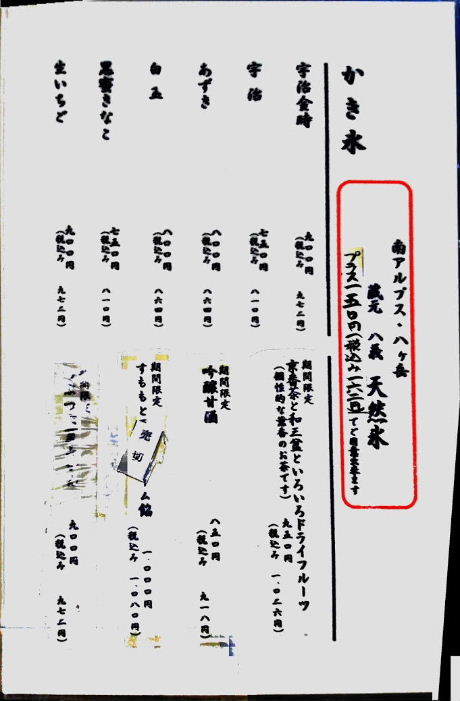 かき氷
南アルプス・八ヶ岳
蔵元 八義 天然氷
プラス一五〇円(税込み一六二円)でご用意出来ます
宇治金時
九〇〇円
(税込み 九七二円)
宇治
七五〇円
(税込み 八一〇円)
あずき
八〇〇円
(税込み 八六四円)
白玉
八〇〇円
(税込み 八六四円)
黒蜜きなこ
七五〇円
(税込み 八一〇円)
生いちご
九〇〇円
(税込み 九七二円)
期間限定
京番茶と和三盆といろいろドライフルーツ
(個性的な薫香のお茶です)
九五〇円
(税込み 一、〇二六円)
期間限定
吟醸甘酒
八五〇円
(税込み 九一八円)
期間限定
すももと
売切
ム餡
一、〇〇〇円
(税込み 一、〇八〇円)
九〇〇円
(税込み 九七二円)